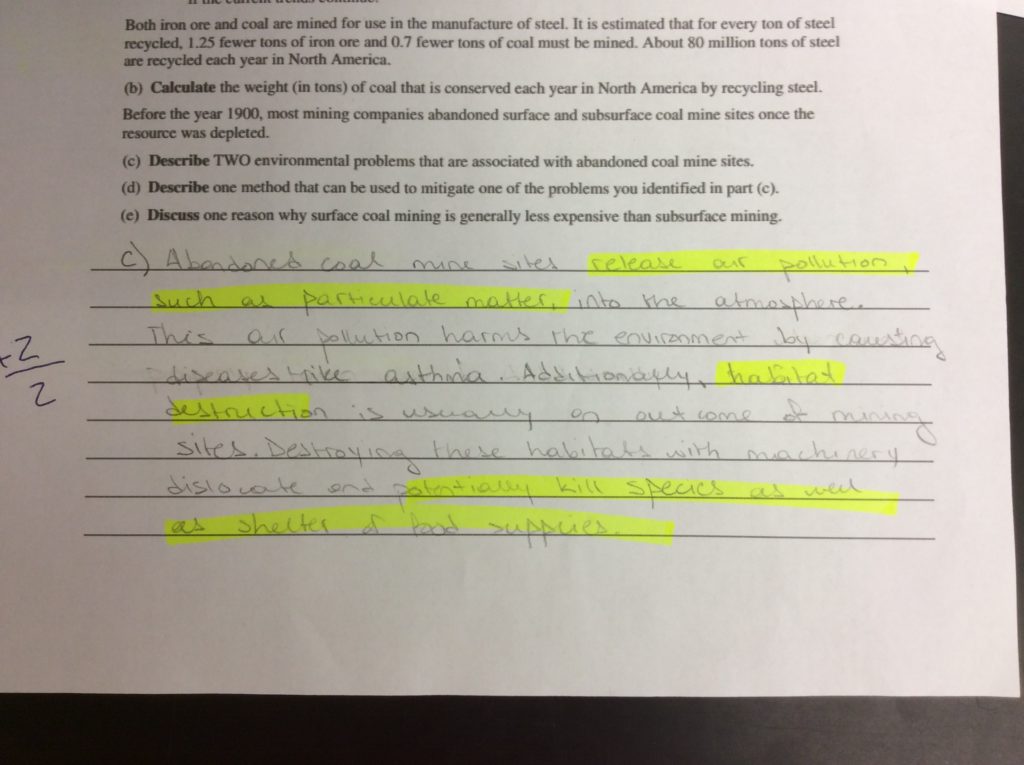 Both iron ore and coal are mined for use in the manufacture of steel. It is estimated that for every ton of steel
recycled, 1.25 fewer tons of iron ore and 0.7 fewer tons of coal must be mined. About 80 million tons of steel
are recycled each year in North America.
(b) Calculate the weight (in tons) of coal that is conserved each year in North America by recycling steel.
Before the year 1900, most mining companies abandoned surface and subsurface coal mine sites once the
resource was depleted.
(c) Describe TWO environmental problems that are associated with abandoned coal mine sites.
(d) Describe one method that can be used to mitigate one of the problems you identified in part (c).
(e) Discuss one reason why surface coal mining is generally less expensive than subsurface mining.
c) Abandoned coal mine sites release air pollution,
such as particulate matter, into the atmosphere.
This air pollution harms the environment by causing
diseases like asthma. Additionally, habitat
destruction is usually an outcome of mining
sites. Destroying these habitats with machinery
dislocate and potentially kill species as well
as shelter of food supplies.
+2
2